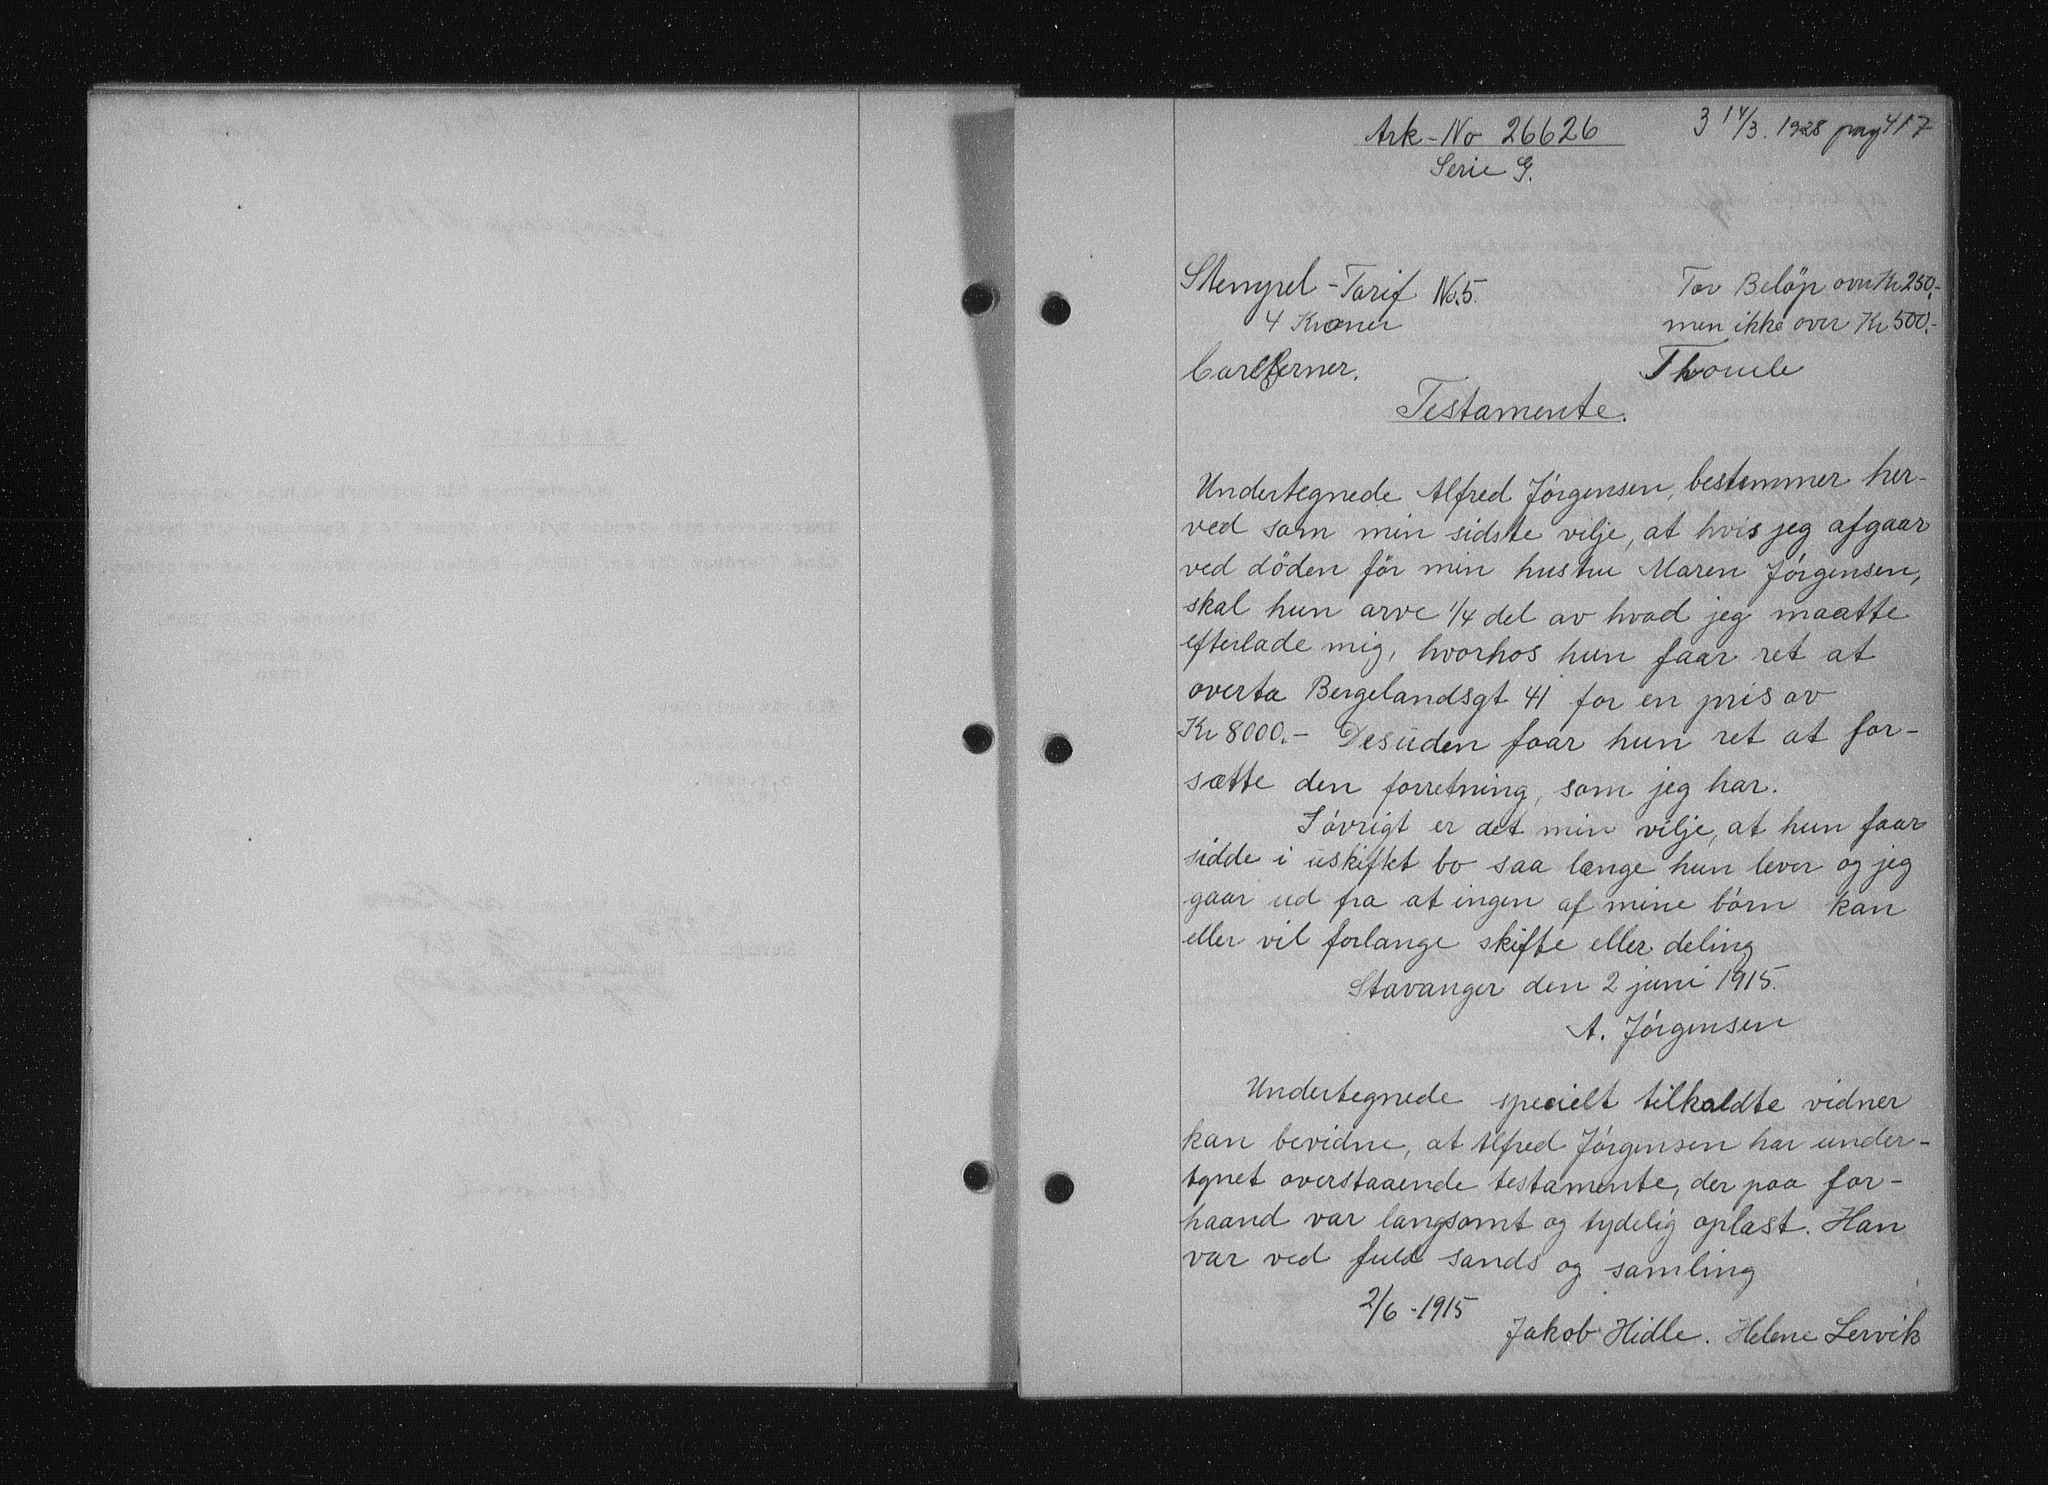 Ark-No 26626
3 14/3. 1928 pag 417
Serie G.
Stempel-Tarif No. 5.
For Beløp over Kr 250.-
4 Kroner
men ikke over Kr 500.-
Carl Berner.
Testamente.
Undertegnede Alfred Jørgensen, bestemmer her-
ved som min sidste vilje, at hvis jeg afgaar
ved døden før min hustru Maren Jørgensen,
skal hun arve 1/4 del av hvad jeg maatte
efterlade mig, hvorhos hun faar ret at
overta Bergelandsgt 41 for en pris av
Kr 8000.- Desuden faar hun ret at for-
sætte den forretning, som jeg har.
I øvrigt er det min vilje, at hun faar
sidde i uskiftet bo saa længe hun lever og jeg
gaar ud fra at ingen af mine børn kan
eller vil forlange skifte eller deling
Stavanger den 2 juni 1915.
A. Jørgensen
Undertegnede specielt tilkaldte vidner
kan bevidne, at Alfred Jørgensen har under-
tgnet overstaaende testamente, der paa for-
haand var langsomt og tydelig oplæst. Han
var ved fuld sands og samling
2/6 - 1915
Jakob Hidle. Helene Lervik